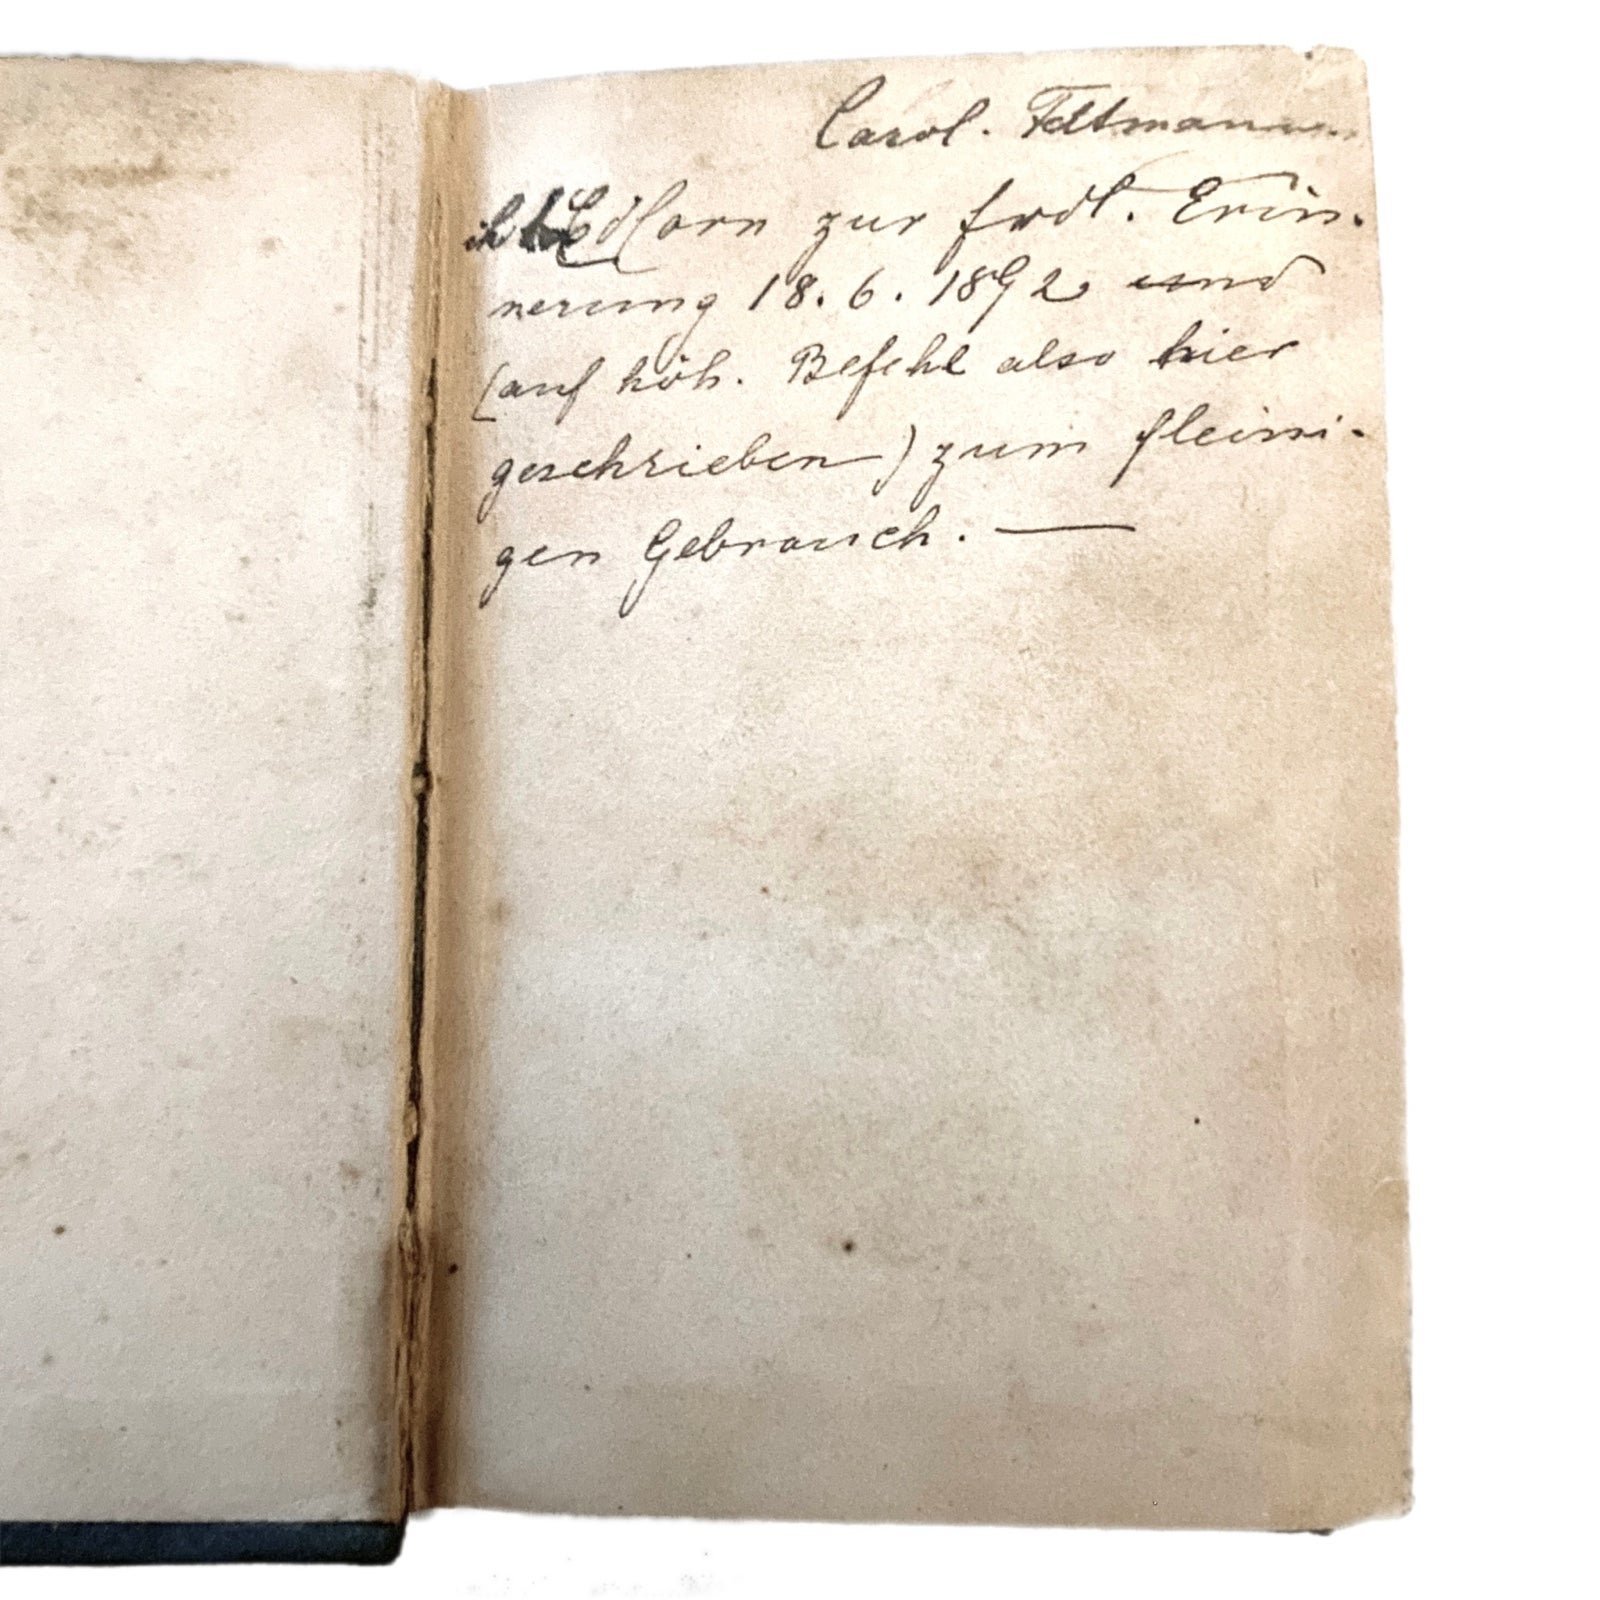 Carol. Feltmann
Horn zur frdl. Erin-
nerung 18. 6. 1892 und
(auf höh. Befehl also hier
geschrieben) zum fleissi-
gen Gebrauch. —